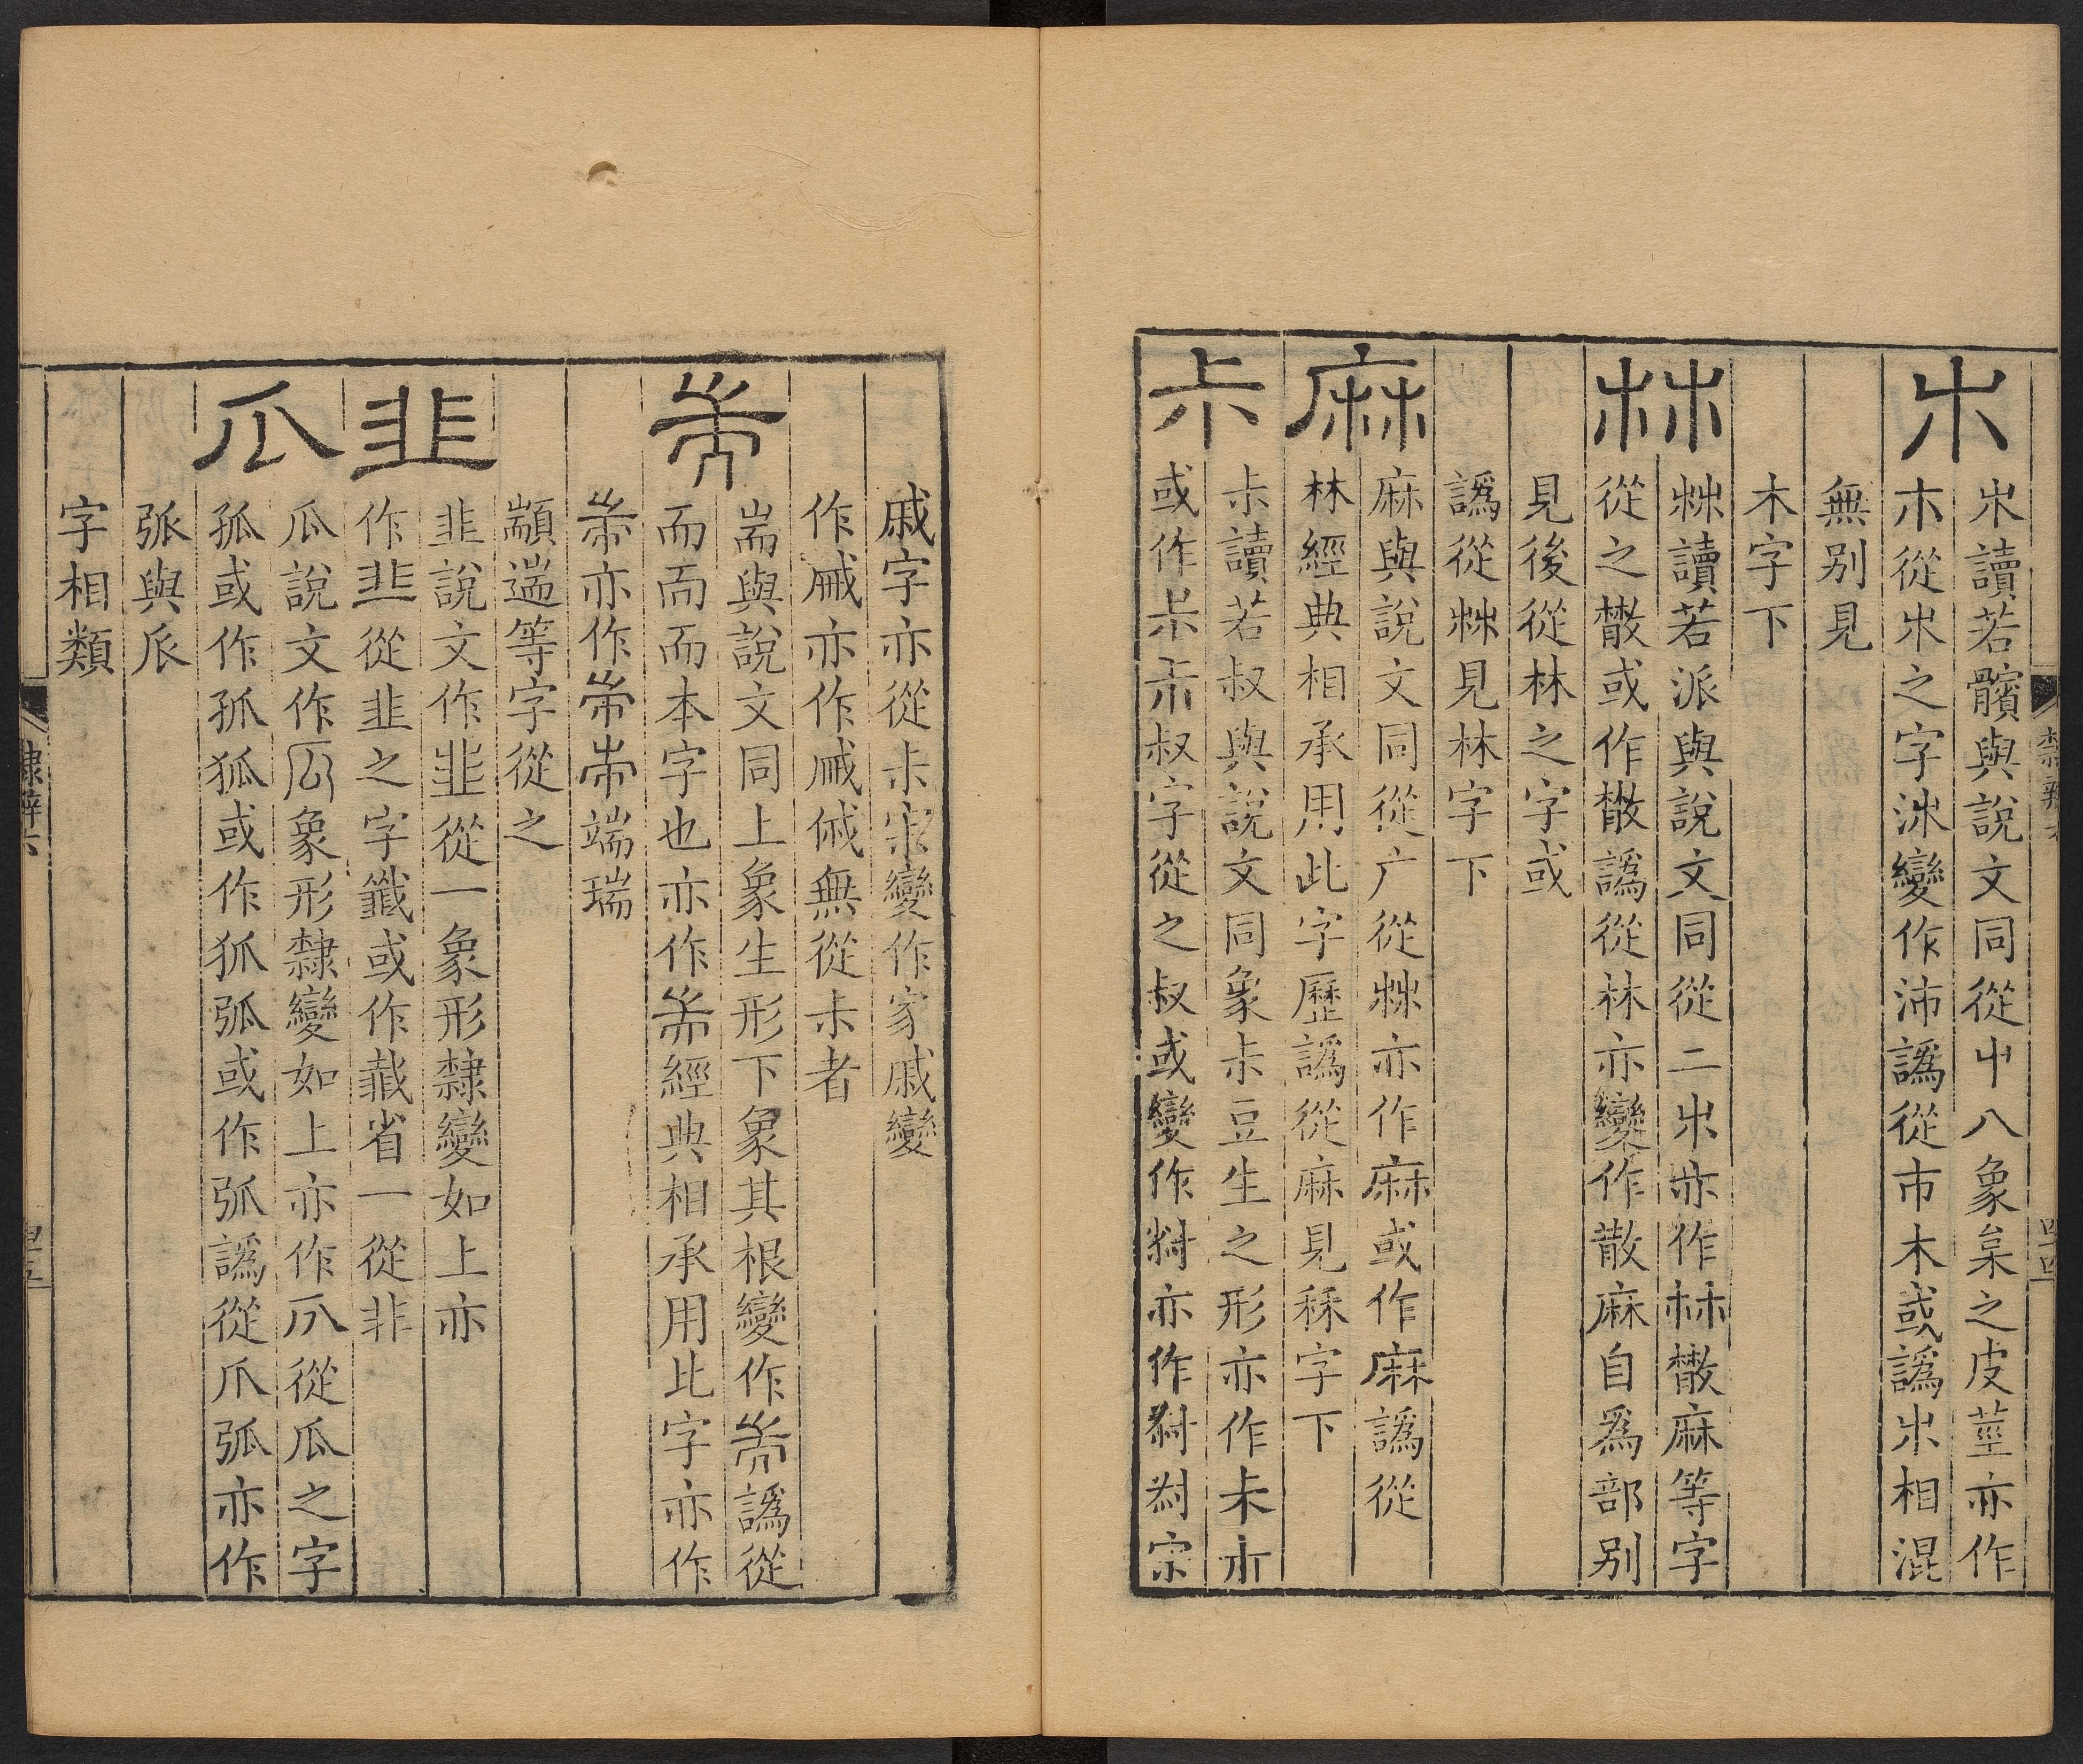 𣎳
𣎳讀若髕與說文同從屮八象枲之皮莖亦作
木從𣎳之字𣲩變作沛譌從市木或譌𣎳相混
無別見
木字下
𣏟
𣏟讀若派與說文同從二𣎳亦作林㪔麻等字
從之㪔或作㪔譌從林亦變作散麻自爲部別
見後從林之字或
譌從𣏟見林字下
麻
麻與說文同從广從𣏟亦作麻或作麻譌從
林經典相承用此字歷譌從麻見秝字下
尗
尗讀若叔與說文同象尗豆生之形亦作未
或作尗叔字從之叔或變作亦作宗
戚字亦從尗宗變作家戚變
作亦作無從尗者
耑
耑與說文同上象生形下象其根變作耑譌從
而而本字也亦作耑經典相承用此字亦作
耑亦作端瑞
顓遄等字從之
韭
韭說文作韭從一象形隸變如上亦
作韭從韭之字韱或作韱省一從非
瓜
瓜說文作象形隸變如上亦作從瓜之字
孤或作孤狐或作狐弧或作弧譌從爪弧亦作
弧與𠂢
字相類
隸辨六
四十四
隸辨六
四十五